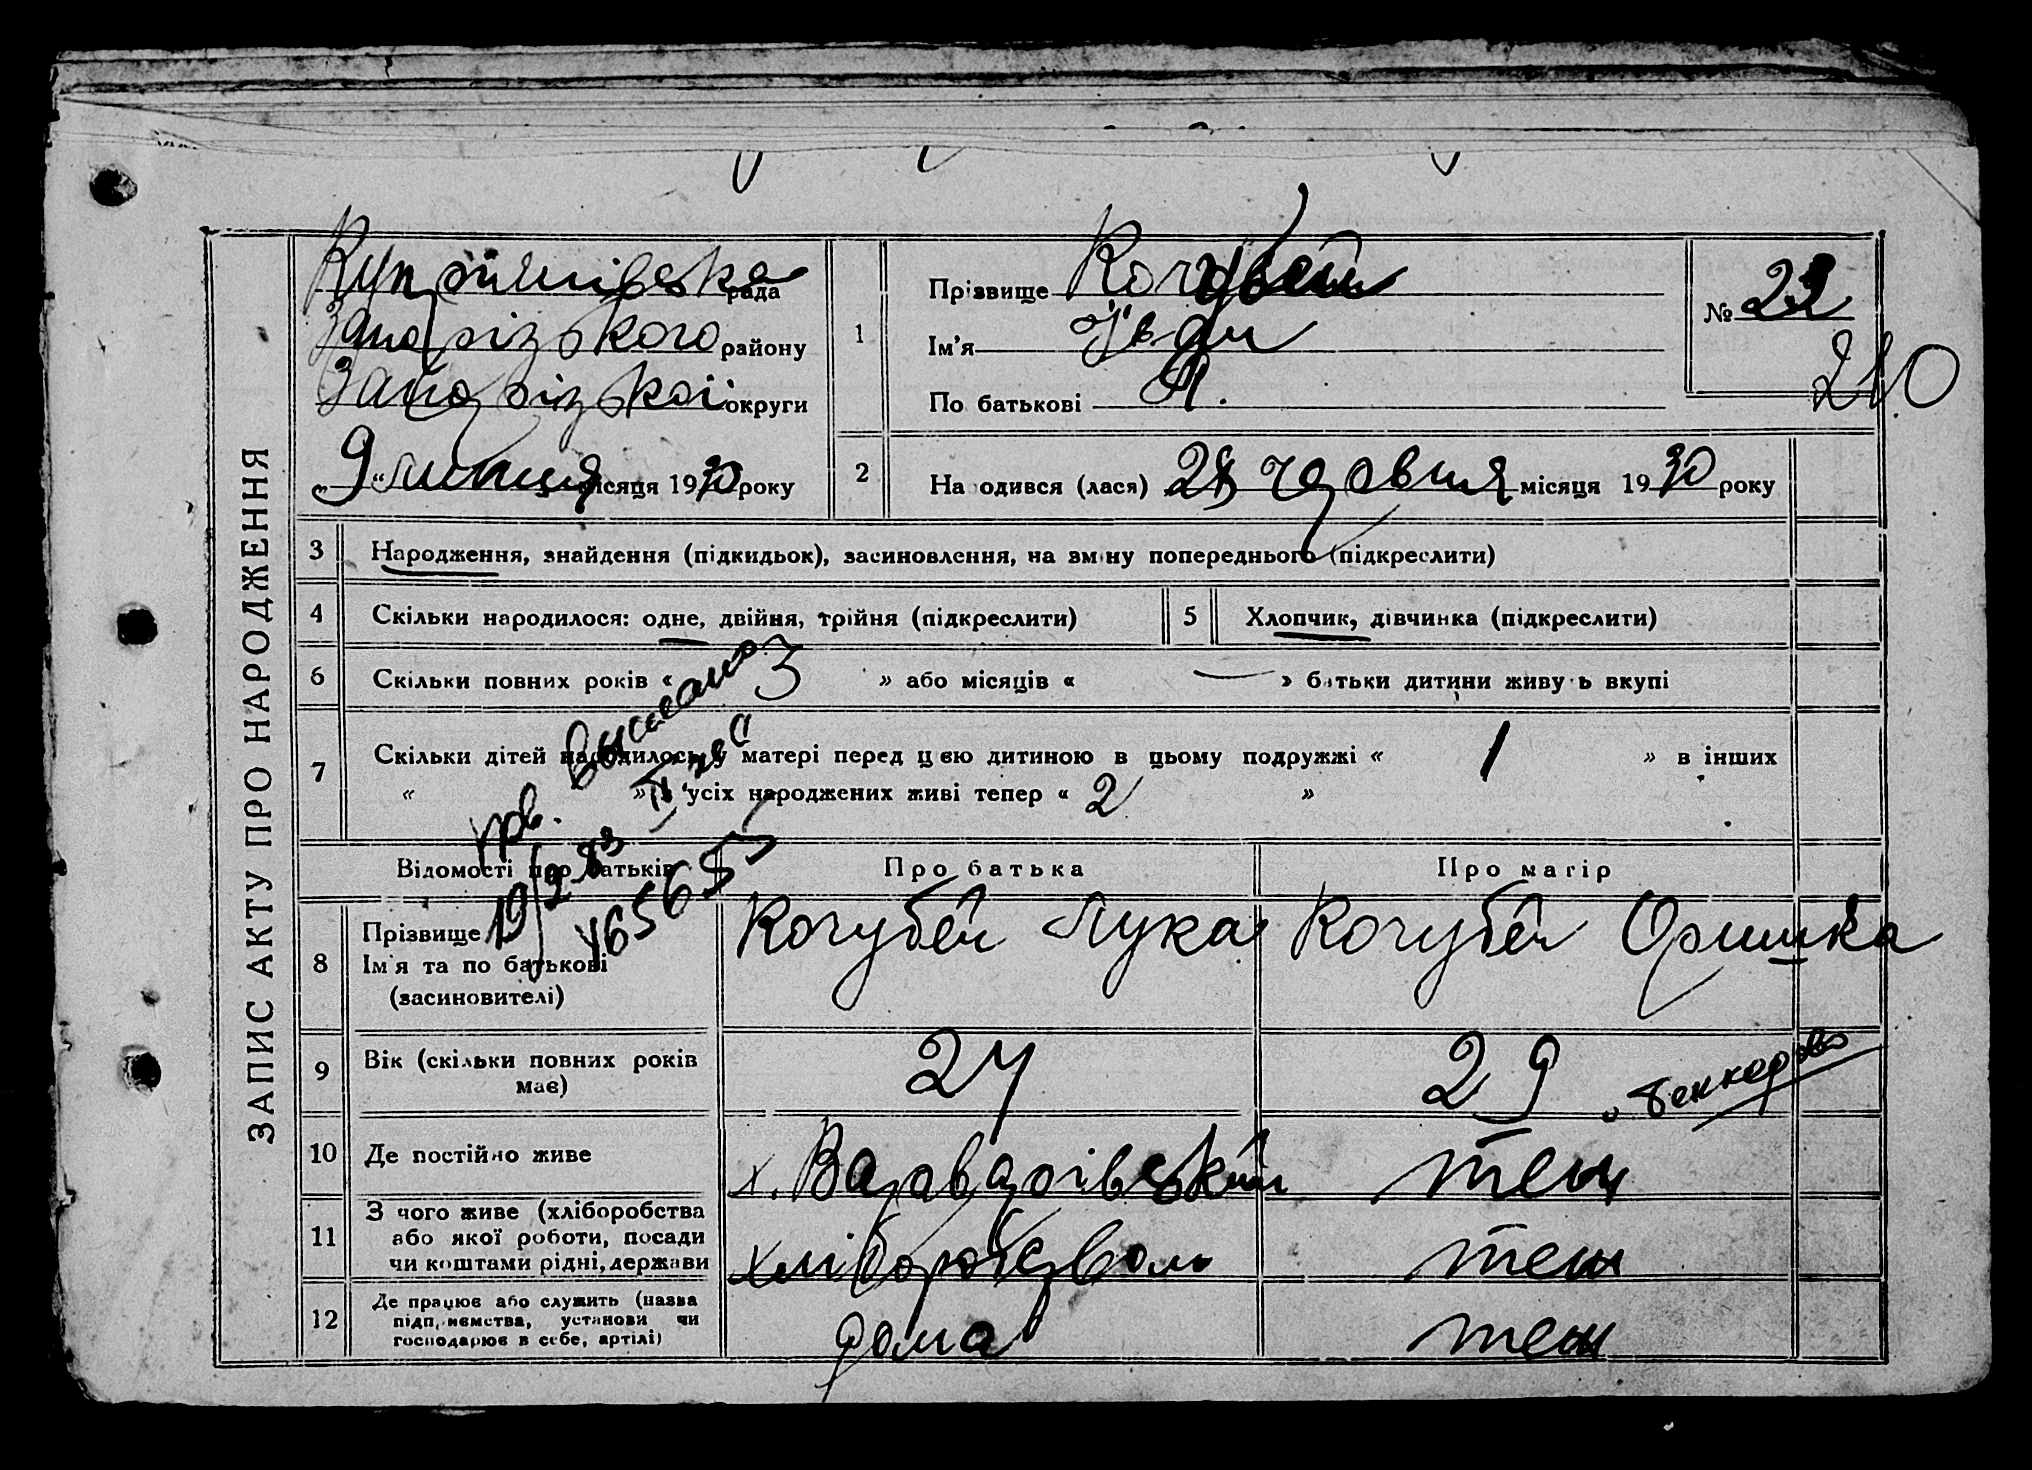 ЗАПИС АКТУ ПРО НАРОДЖЕННЯ
Купріянівська рада
Запорізького району
Запорізької округи
„9“ липня місяця 1930 року
1
Прізвище Кочубей
Ім'я Іван
По батькові Л.
№ 23
210
2
На одився (лася) 28 червня місяця 1930 року
3 Народження, знайдення (підкидьок), засиновлення, на зміну попереднього (підкреслити)
4 Скільки народилося: одне, двійня, трійня (підкреслити)
5 Хлопчик, дівчинка (підкреслити)
6 Скільки повних років « 3 » або місяців « — » батьки дитини живуть вкупі
7 Скільки дітей народилось у матері перед цією дитиною в цьому подружжі « 1 » в інших
« » із усіх народжених живі тепер « 2 »
Выписано
19/2-83
465655
Відомості про батьків
Про батька
Про матір
8 Прізвище
Ім'я та по батькові
(засиновителі)
Кочубей Лука
Кочубей Оришка
9 Вік (скільки повних років
має)
27
29
10 Де постійно живе
х.
теж
11 З чого живе (хліборобства
або якої роботи, посади
чи коштами рідні, держави
хліборобством
теж
12 Де працює або служить (назва
підприємства, установи чи
господарює в себе, артілі)
дома
теж